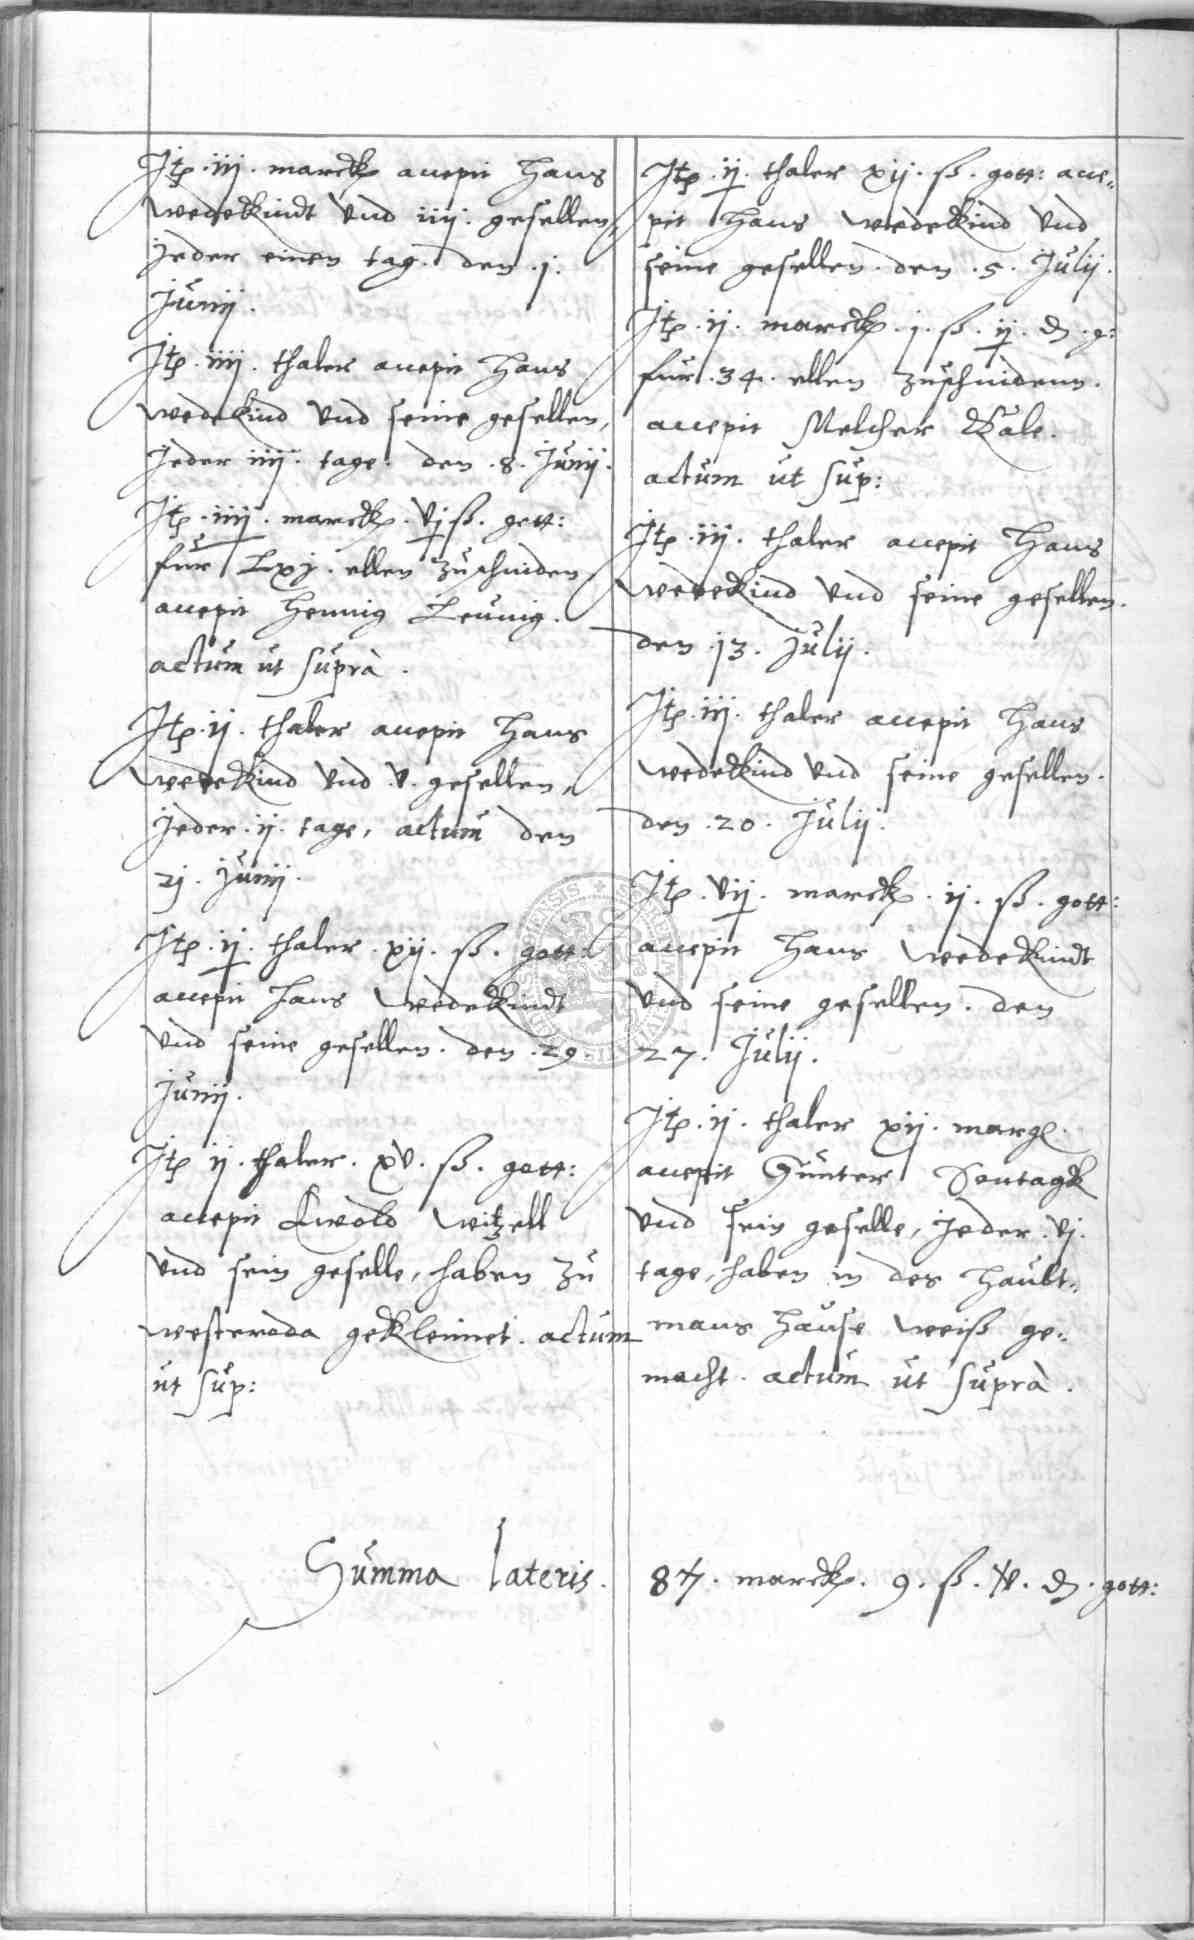 Itp. iij. marckh accepit Hans
Wedekindt vnd iiij. gesellen,
Jeder einen tag. den .j.
Junij.
Itp. iiij. thaler accepit Hans
Wedekind vnd seine gesellen,
Jeder iiij. tage. den .8. Junij.
Itp. iiij. marckh. vj ß. gott:
für Lxj. ellen Zuschniden
accepit Hennig Leunig.
actum ut suprà.
Itp. ij. thaler accepit Hans
Wedekind vnd .v. gesellen,
Jeder .ij. tage, actum den
2j. Junij.
Itp. ij. thaler. xij. ß. gott:
accepit Hans Wedekindt
vnd seine gesellen. den .29.
Junij.
Itp ij. thaler. xv. ß. gott:
accepit Ewold Witzell
vnd sein geselle, haben zu
Westeroda gekleimet. actum
ut sup:
Itp. ij. thaler xij. ß. gott: acce„
pit Hans Wedekind vnd
seine gesellen. den .5. Julij.
Itp. ij. marckh. j. ß. ij. d. g:
für .34. ellen Zuschnidenn.
accepit Melcher Kale.
actum ut sup:
Itp. iij. thaler accepit Hans
Wedekind vnd seine gesellen.
den .13. Julij.
Itp. iij. thaler accepit Hans
Wedekind vnd seine gesellen.
den .20. Julij.
Itp. vij. marckh. ij. ß. gott:
accepit Hans Wedekindt
vnd seine gesellen. den
27. Julij.
Itp. ij. thaler xij. margl.
accepit Günter Sontagk
vnd sein geselle, Jeder .vj.
tage, haben in des Haubt„
mans Hause weiß ge„
macht. actum ut suprà.
Summa lateris. 87. marckh. 9. ß. v. d. gott: